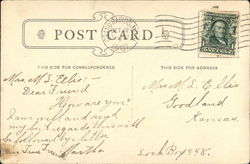 POST CARD
THIS SIDE FOR CORRESPONDENCE
THIS SIDE FOR ADDRESS
Mrs M. S. Ellis:-
Dear Friend
How are you?
I am well and
my
be followed by letter
Your True Friend
Martha
Mrs M. S. Ellis
Goodland
Kansas.
Lock Box 448.